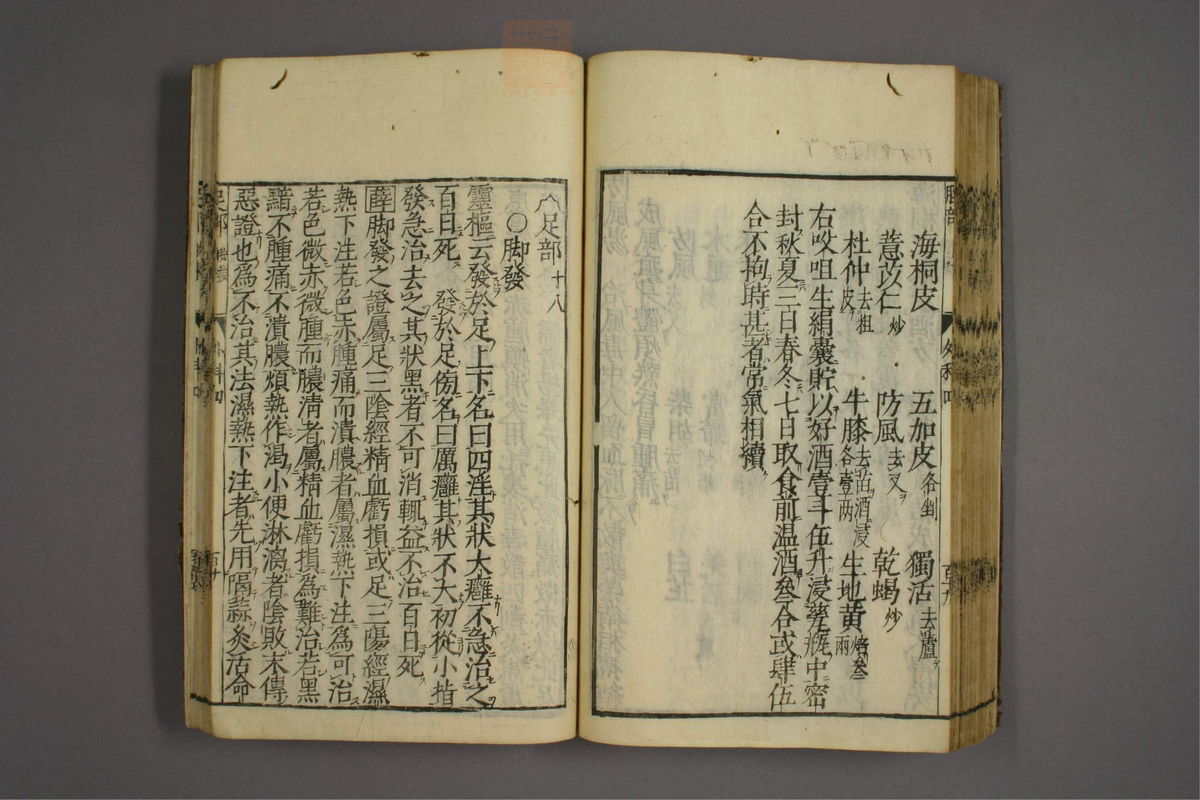 海桐皮 五加皮各剉 獨活去蘆
薏苡仁炒 防風去叉 乾蝎炒
杜仲去粗皮 牛膝去苗酒浸各壹两 生地黄焙叁兩
右㕮咀生絹囊貯以好酒壹斗伍升浸瓷瓶中密
封秋夏三日春冬七日取食前温酒叄合或肆伍
合不拘時甚者常氣相續
足部 十八
〇脚發
靈樞云發於足上下名曰四淫其狀大癰不急治之
百日死 發於足傍名曰厲癰其狀不大初從小指
發急治去之其狀黑者不可消輒益不治百日死
薛脚發之證屬足三陰經精血虧損或足三陽經濕
熱下注若色赤腫痛而潰膿者屬濕熱下注為可治
若色微赤微腫而膿清者屬精血虧損為難治若黑
黯不腫痛不潰膿煩熱作渴小便淋漓者陰敗末傳
惡證也為不治其法濕熱下注者先用隔蒜灸活命